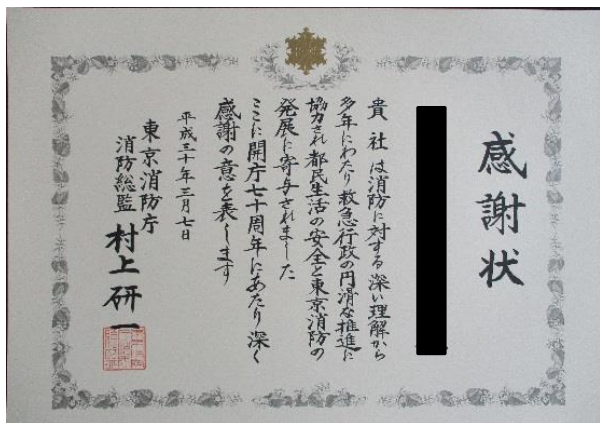 感謝状
貴社は消防に対する深い理解から
多年にわたり救急行政の円滑な推進に
協力され都民生活の安全と東京消防の
発展に寄与されました
ここに開庁七十周年にあたり深く
感謝の意を表します
平成三十年三月七日
東京消防庁
消防総監 村上研一